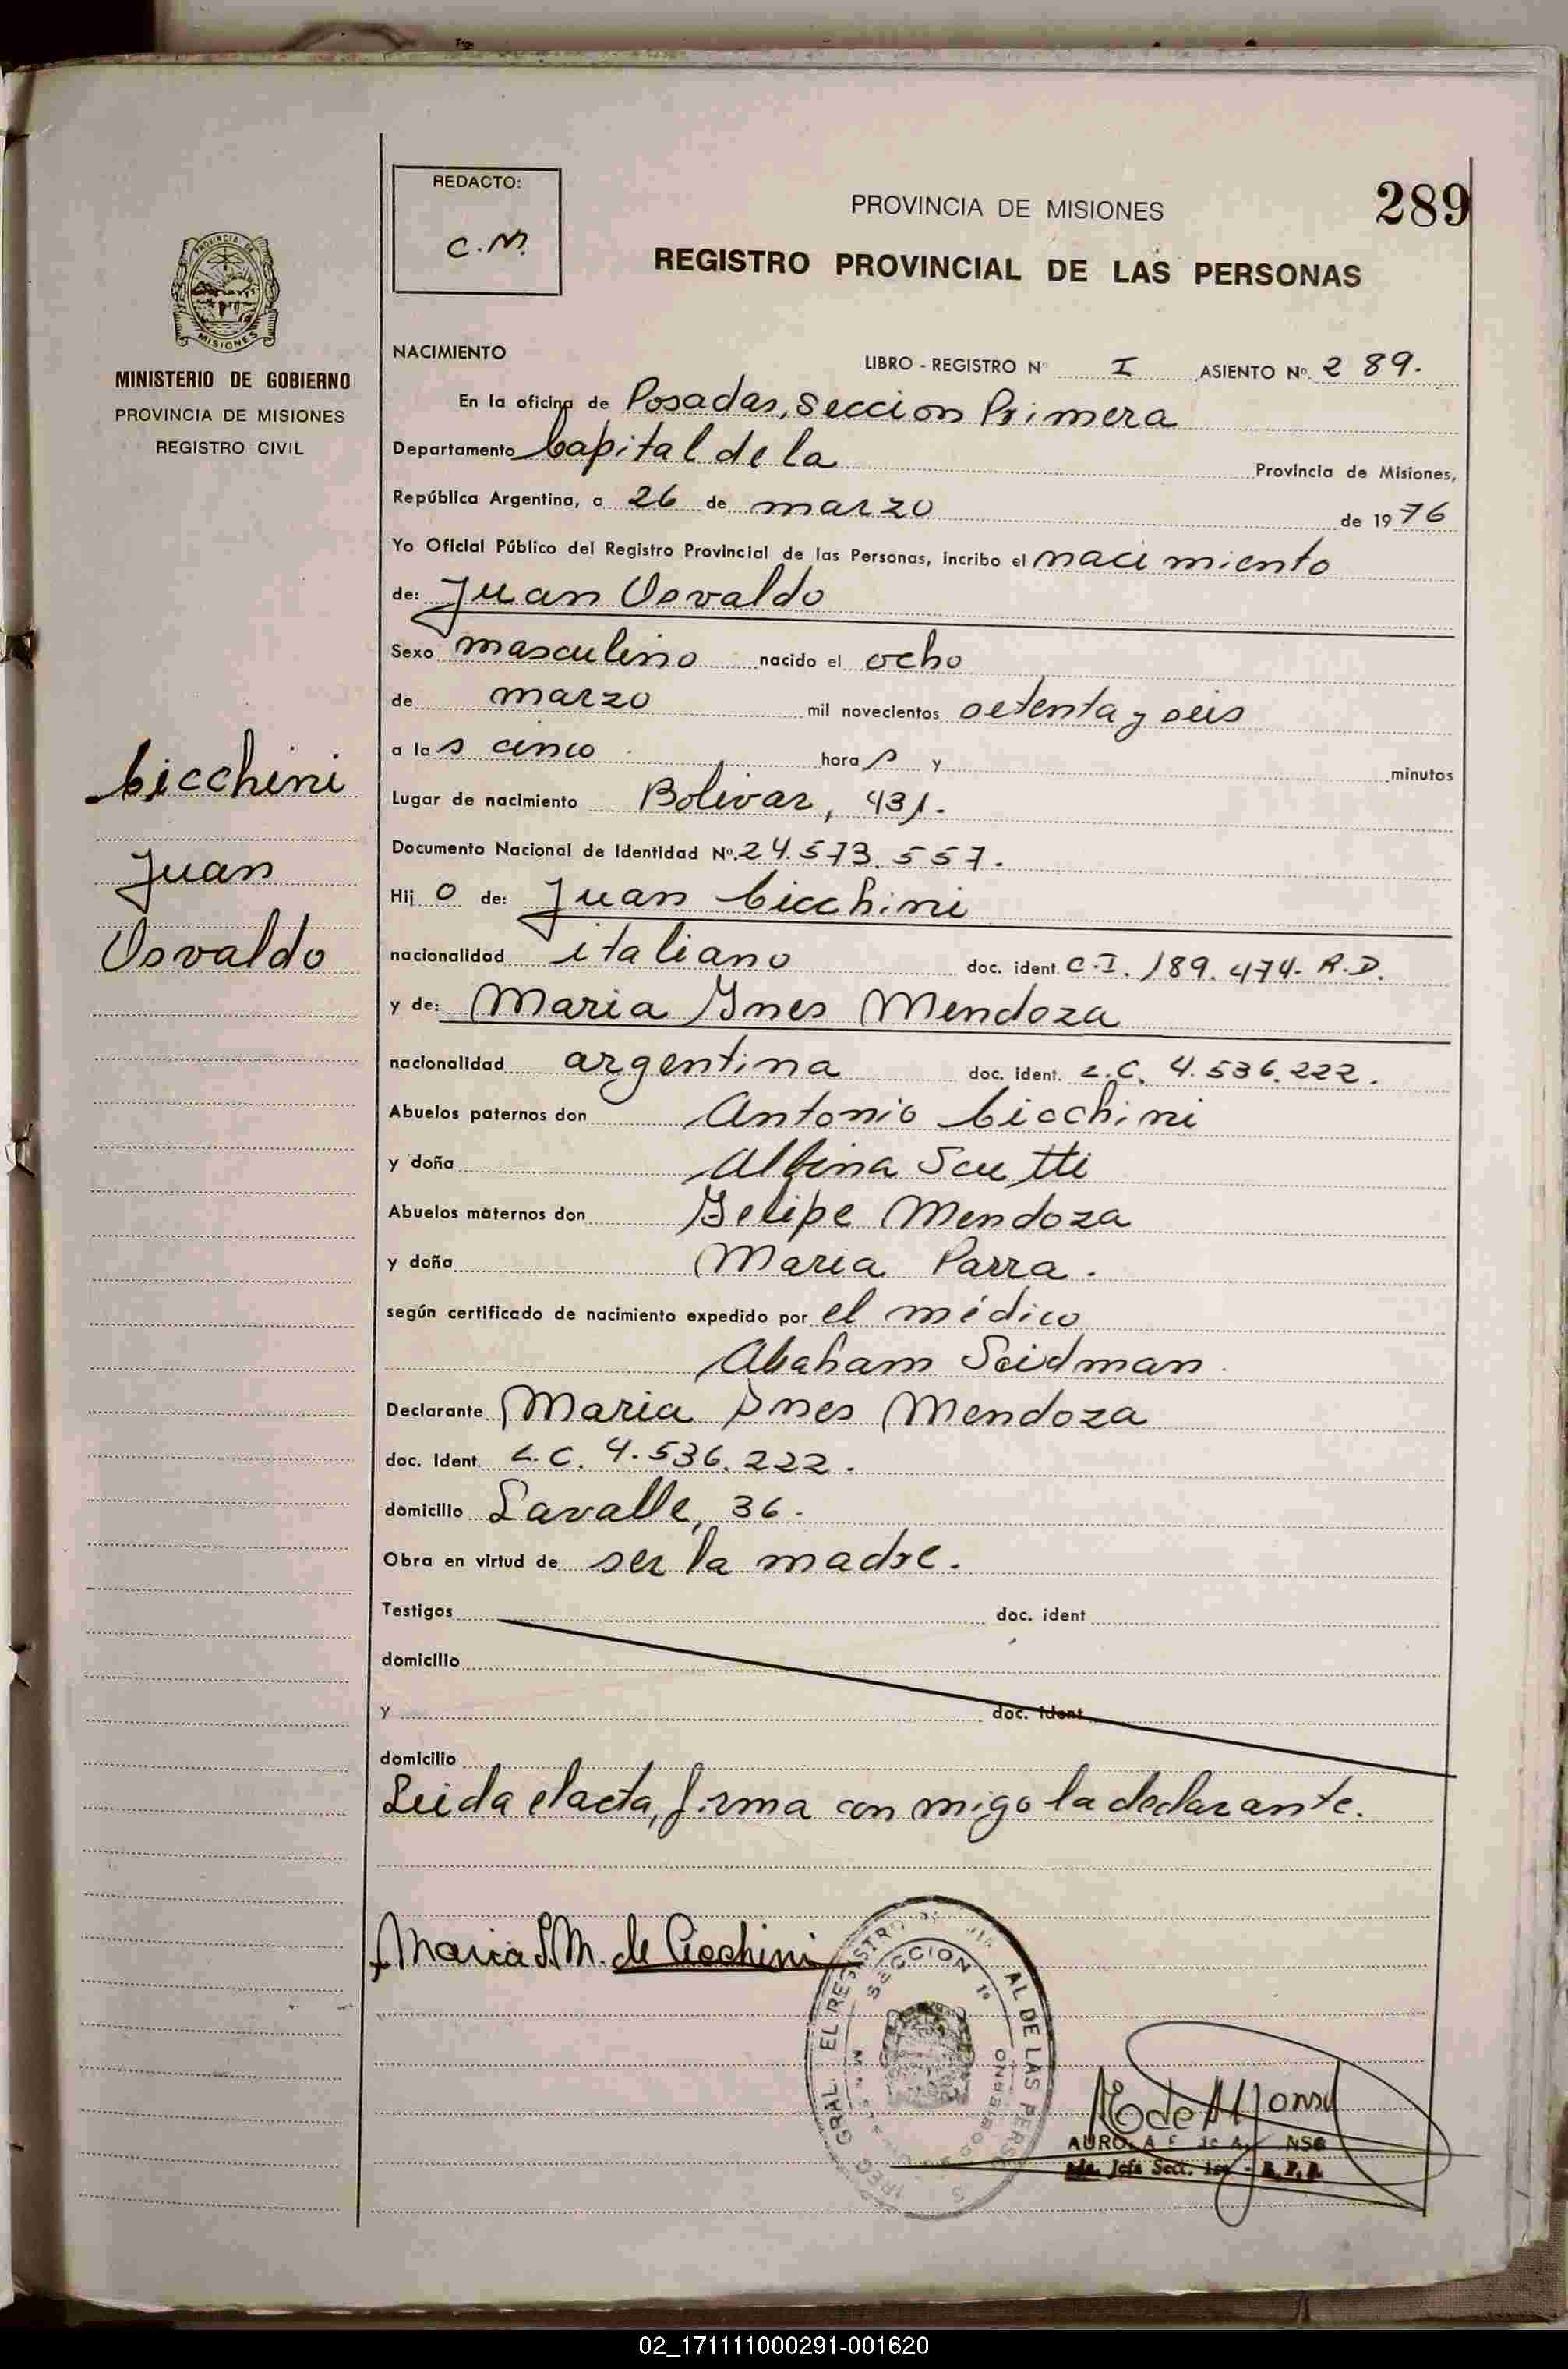 REDACTO:
C.M.
PROVINCIA DE MISIONES
289
REGISTRO PROVINCIAL DE LAS PERSONAS
PROVINCIA DE
MISIONES
MINISTERIO DE GOBIERNO
PROVINCIA DE MISIONES
REGISTRO CIVIL
Cicchini
Juan
Osvaldo
NACIMIENTO LIBRO - REGISTRO Nº I ASIENTO Nº 289.
En la oficina de Posadas, Seccion Primera
Departamento Capital de la Provincia de Misiones,
República Argentina, a 26 de marzo de 1976
Yo Oficial Público del Registro Provincial de las Personas, incribo el nacimiento
de: Juan Osvaldo
Sexo masculino nacido el ocho
de marzo mil novecientos setenta y seis
a las cinco horas y minutos
Lugar de nacimiento Bolivar, 431.
Documento Nacional de Identidad Nº. 24.573.557.
Hijo de: Juan Cicchini
nacionalidad italiano doc. ident. C.I. 189.474. R.D.
y de: Maria Ynes Mendoza
nacionalidad argentina doc. ident. L.C. 4.536.222.
Abuelos paternos don Antonio Cicchini
y doña Albina Scutti
Abuelos maternos don Felipe Mendoza
y doña Maria Parra.
según certificado de nacimiento expedido por el médico
Abaham Seidman
Declarante Maria Ynes Mendoza
doc. Ident. L.C. 4.536.222.
domicilio Lavalle, 36.
Obra en virtud de ser la madre.
Testigos doc. ident
domicilio
y doc. ident
domicilio
Leida el acta, firma conmigo la declarante.
Maria I.M. de Cicchini
SECCION 1º
DE LAS
Jefe Secc.
02_171111000291-001620